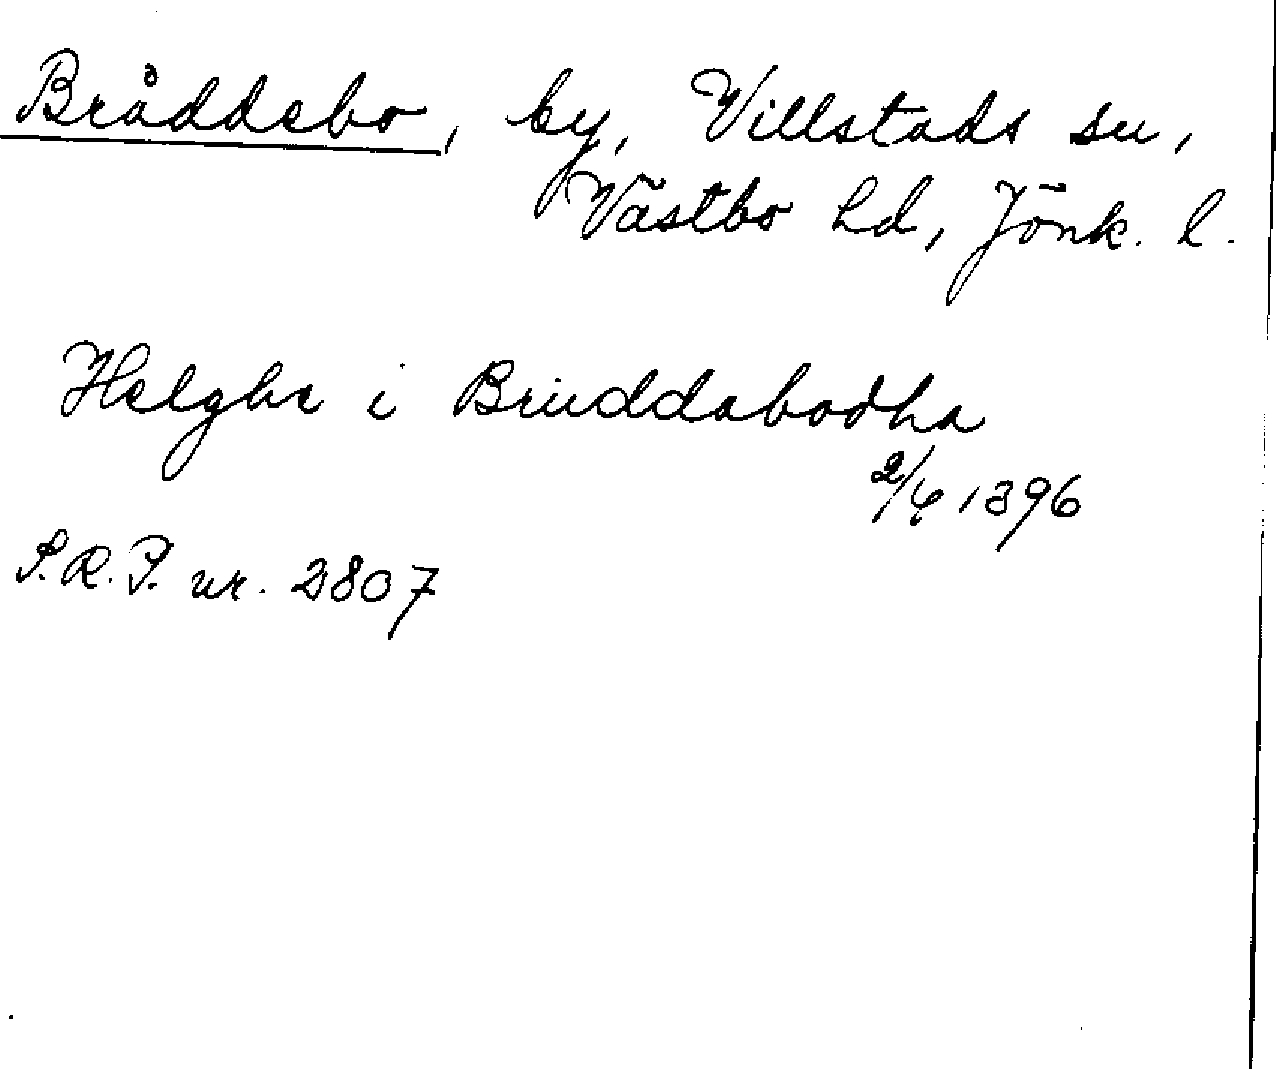 Bråddebo, by, Villstads sn,
Västbo hd, Jönk. l.
Helghe i Bruddabodha
2/6 1396
S.R.P. nr. 2807